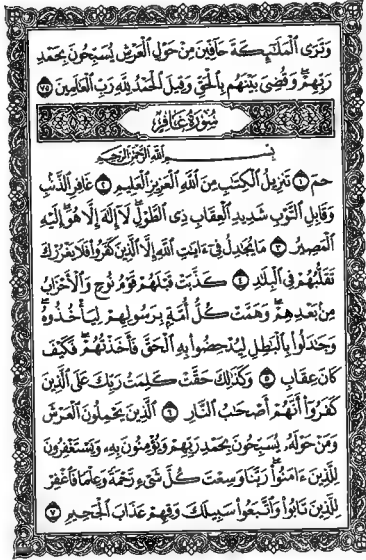 وَتَرَى ٱلْمَلَٰٓئِكَةَ حَآفِّينَ مِنْ حَوْلِ ٱلْعَرْشِ يُسَبِّحُونَ بِحَمْدِ
رَبِّهِمْ ۖ وَقُضِىَ بَيْنَهُم بِٱلْحَقِّ وَقِيلَ ٱلْحَمْدُ لِلَّهِ رَبِّ ٱلْعَٰلَمِينَ ٧٥
سُورَةُ غَافِرٍ
بِسْمِ ٱللَّهِ ٱلرَّحْمَٰنِ ٱلرَّحِيمِ
حمٓ ١ تَنزِيلُ ٱلْكِتَٰبِ مِنَ ٱللَّهِ ٱلْعَزِيزِ ٱلْعَلِيمِ ٢ غَافِرِ ٱلذَّنۢبِ
وَقَابِلِ ٱلتَّوْبِ شَدِيدِ ٱلْعِقَابِ ذِى ٱلطَّوْلِ ۖ لَآ إِلَٰهَ إِلَّا هُوَ ۖ إِلَيْهِ
ٱلْمَصِيرُ ٣ مَا يُجَٰدِلُ فِىٓ ءَايَٰتِ ٱللَّهِ إِلَّا ٱلَّذِينَ كَفَرُوا۟ فَلَا يَغْرُرْكَ
تَقَلُّبُهُمْ فِى ٱلْبِلَٰدِ ٤ كَذَّبَتْ قَبْلَهُمْ قَوْمُ نُوحٍ وَٱلْأَحْزَابُ
مِنۢ بَعْدِهِمْ ۖ وَهَمَّتْ كُلُّ أُمَّةٍۭ بِرَسُولِهِمْ لِيَأْخُذُوهُ ۖ
وَجَٰدَلُوا۟ بِٱلْبَٰطِلِ لِيُدْحِضُوا۟ بِهِ ٱلْحَقَّ فَأَخَذْتُهُمْ ۖ فَكَيْفَ
كَانَ عِقَابِ ٥ وَكَذَٰلِكَ حَقَّتْ كَلِمَتُ رَبِّكَ عَلَى ٱلَّذِينَ
كَفَرُوٓا۟ أَنَّهُمْ أَصْحَٰبُ ٱلنَّارِ ٦ ٱلَّذِينَ يَحْمِلُونَ ٱلْعَرْشَ
وَمَنْ حَوْلَهُۥ يُسَبِّحُونَ بِحَمْدِ رَبِّهِمْ وَيُؤْمِنُونَ بِهِۦ وَيَسْتَغْفِرُونَ
لِلَّذِينَ ءَامَنُوا۟ رَبَّنَا وَسِعْتَ كُلَّ شَىْءٍ رَّحْمَةً وَعِلْمًا فَٱغْفِرْ
لِلَّذِينَ تَابُوا۟ وَٱتَّبَعُوا۟ سَبِيلَكَ وَقِهِمْ عَذَابَ ٱلْجَحِيمِ ٧